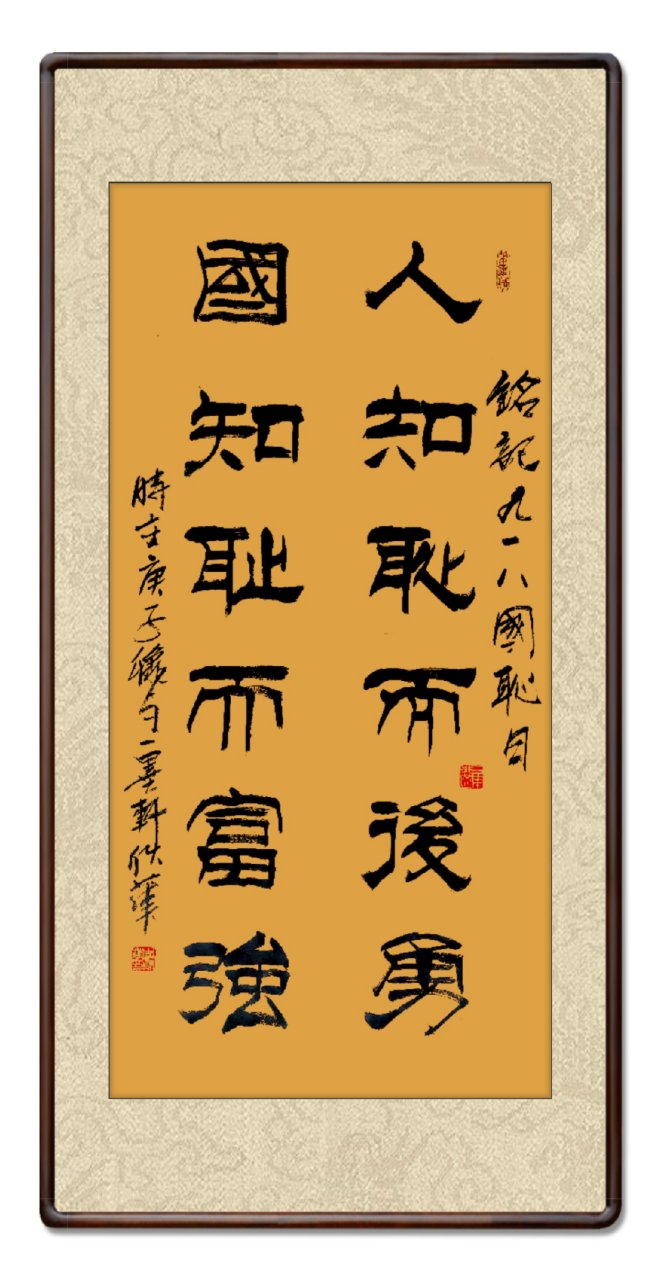 銘記九一八國恥日
人知恥而後勇
國知耻而富強
時在庚子 一墨軒